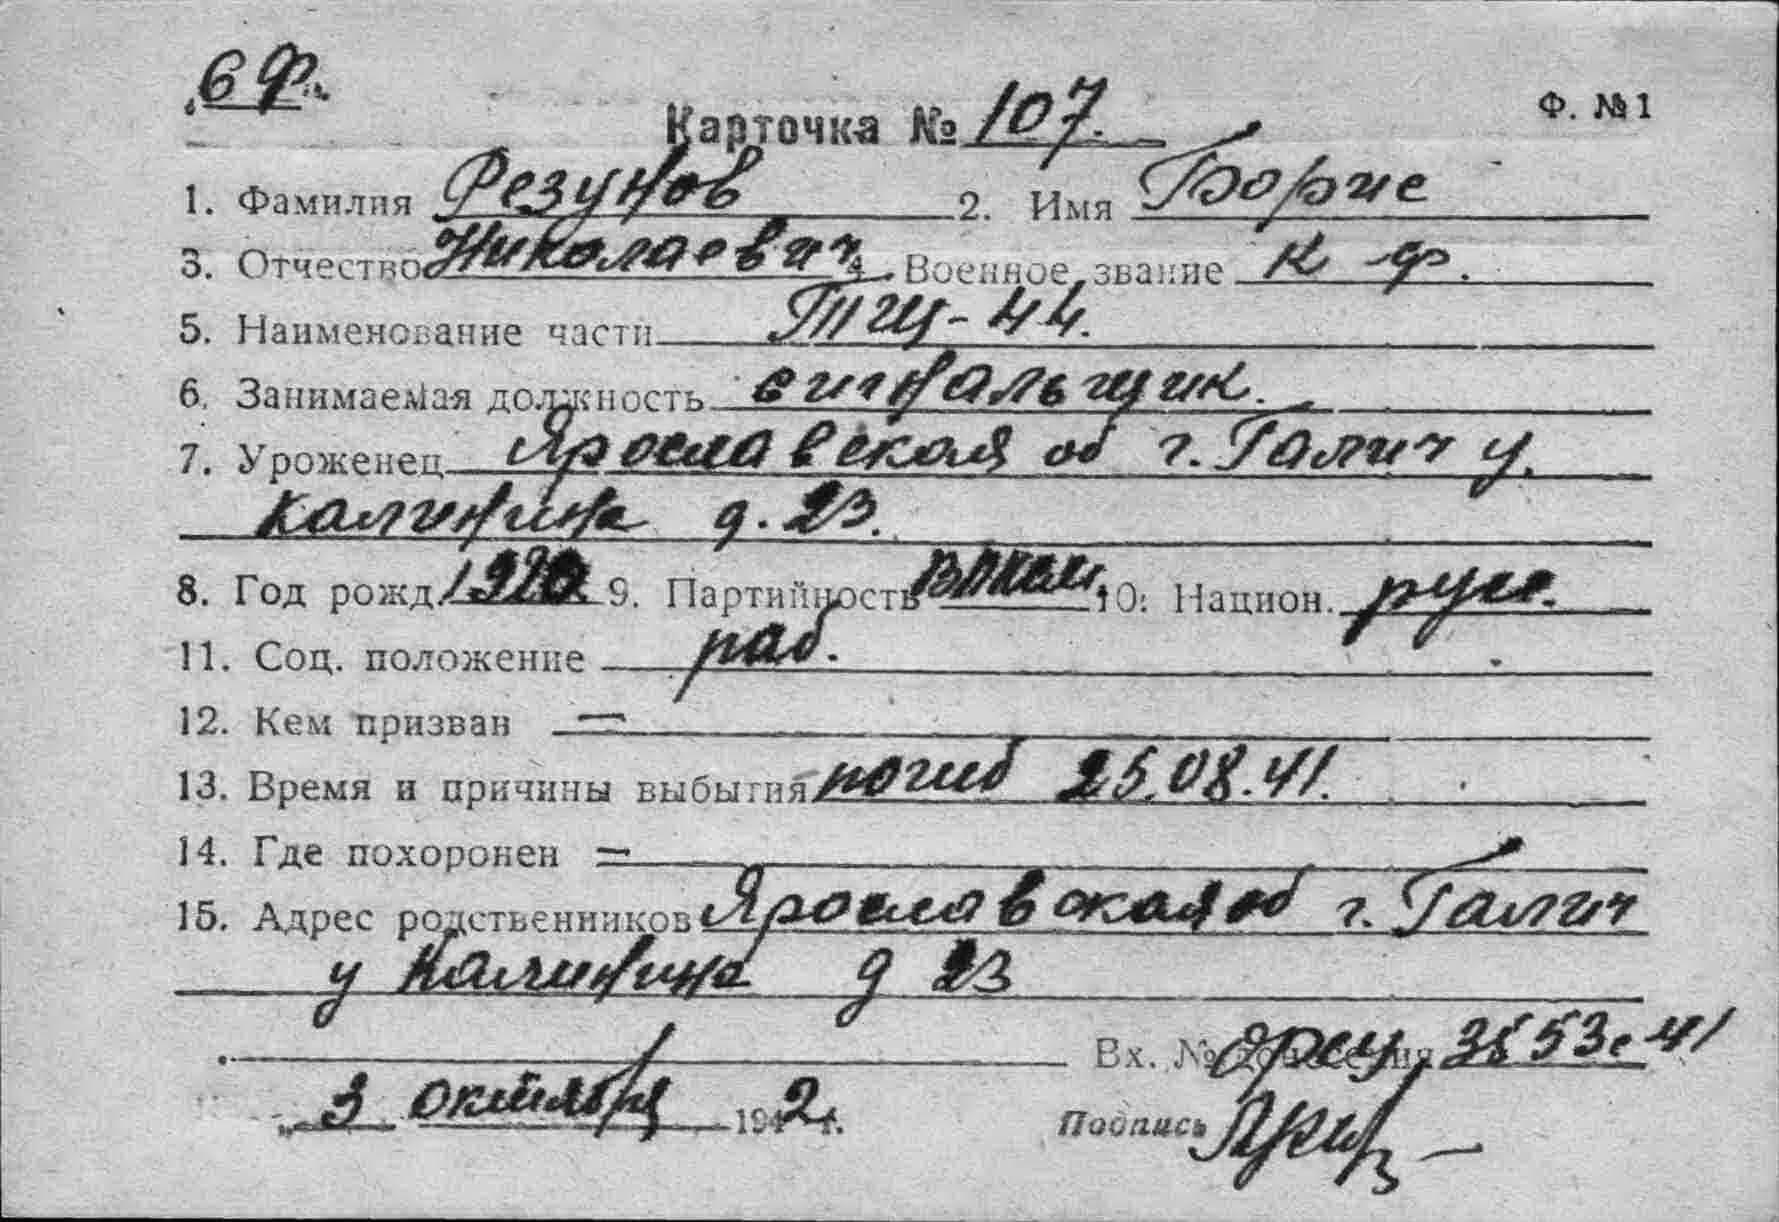 6 Ф.
Карточка № 107. Ф. № 1
1. Фамилия Резунов 2. Имя Борис
3. Отчество Николаевич 4. Военное звание к-ф.
5. Наименование части ТЩ-44.
6. Занимаемая должность сигнальщик.
7. Уроженец Ярославская об г. Галич у.
Калинина д. 23.
8. Год рожд. 1920 9. Партийность ВЛКСМ 10. Национ. русс.
11. Соц. положение раб.
12. Кем призван —
13. Время и причины выбытия погиб 25.08.41.
14. Где похоронен —
15. Адрес родственников Ярославская об г. Галич
у Калинина д 23
Вх. № донесения 3553с 41
„ 3 октября 1942 г. Подпись